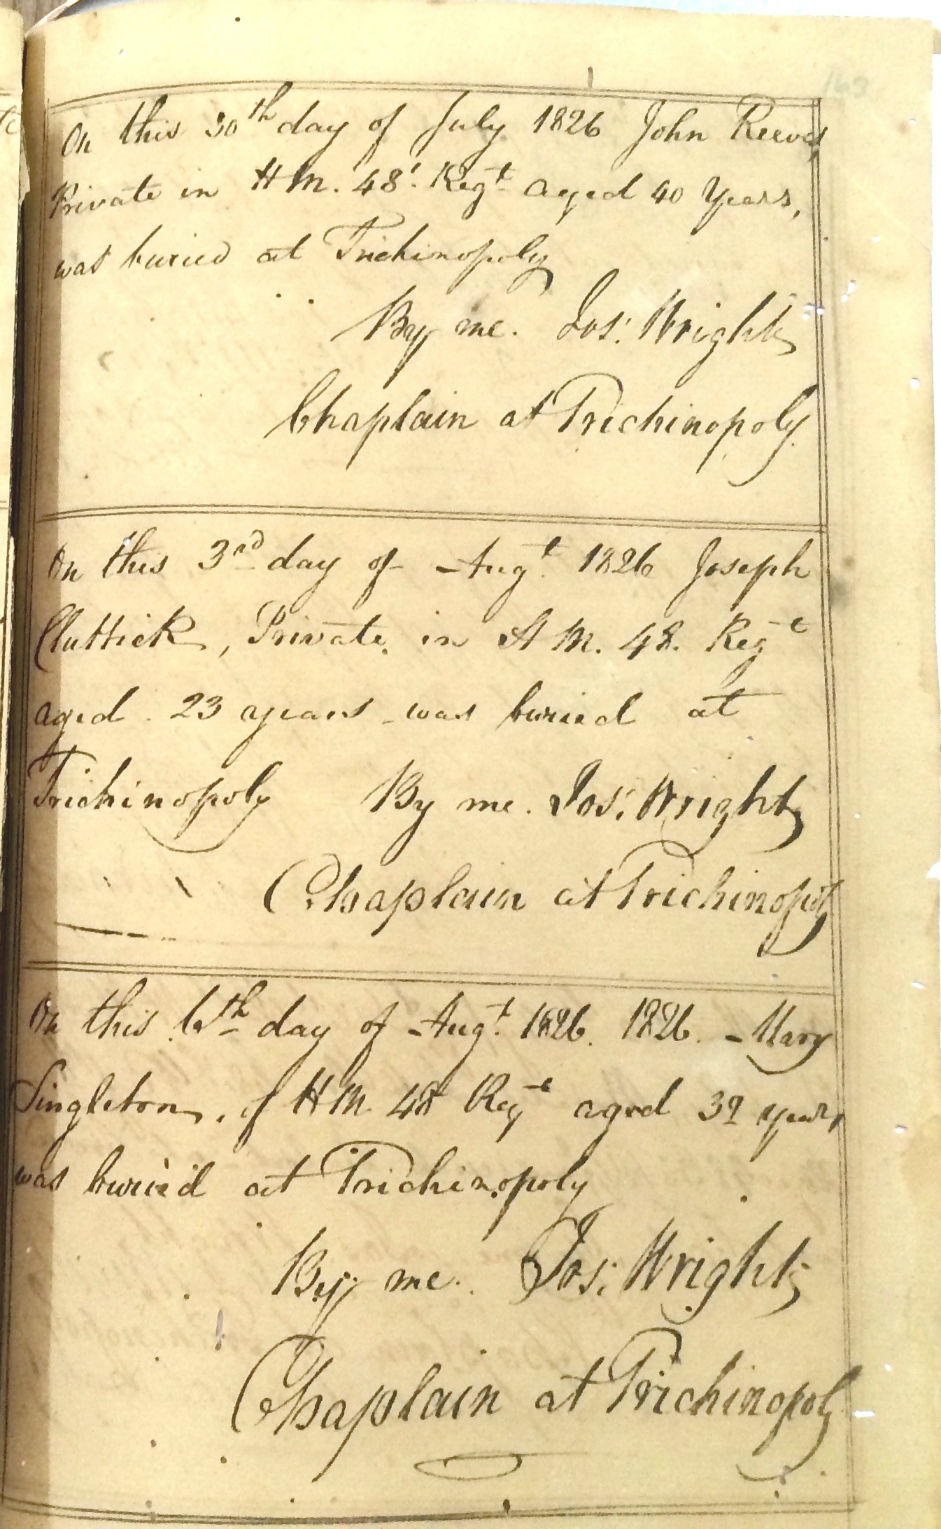 On this 30th day of July 1826 John Reeves
Private in H M. 48th. Regt aged 40 Years,
was buried at Trichinopoly
By me. Jos: Wright
Chaplain at Trichinopoly
On this 3rd day of Augt. 1826 Joseph
Cluttick, Private in H M. 48. Regt
aged 23 years was buried at
Trichinopoly By me. Jos: Wright
Chaplain at Trichinopoly
On this 6th day of Augt. 1826. 1826. Mary
Singleton, of H M. 48 Regt aged 32 years
was buried at Trichinopoly
By me. Jos: Wright
Chaplain at Trichinopoly